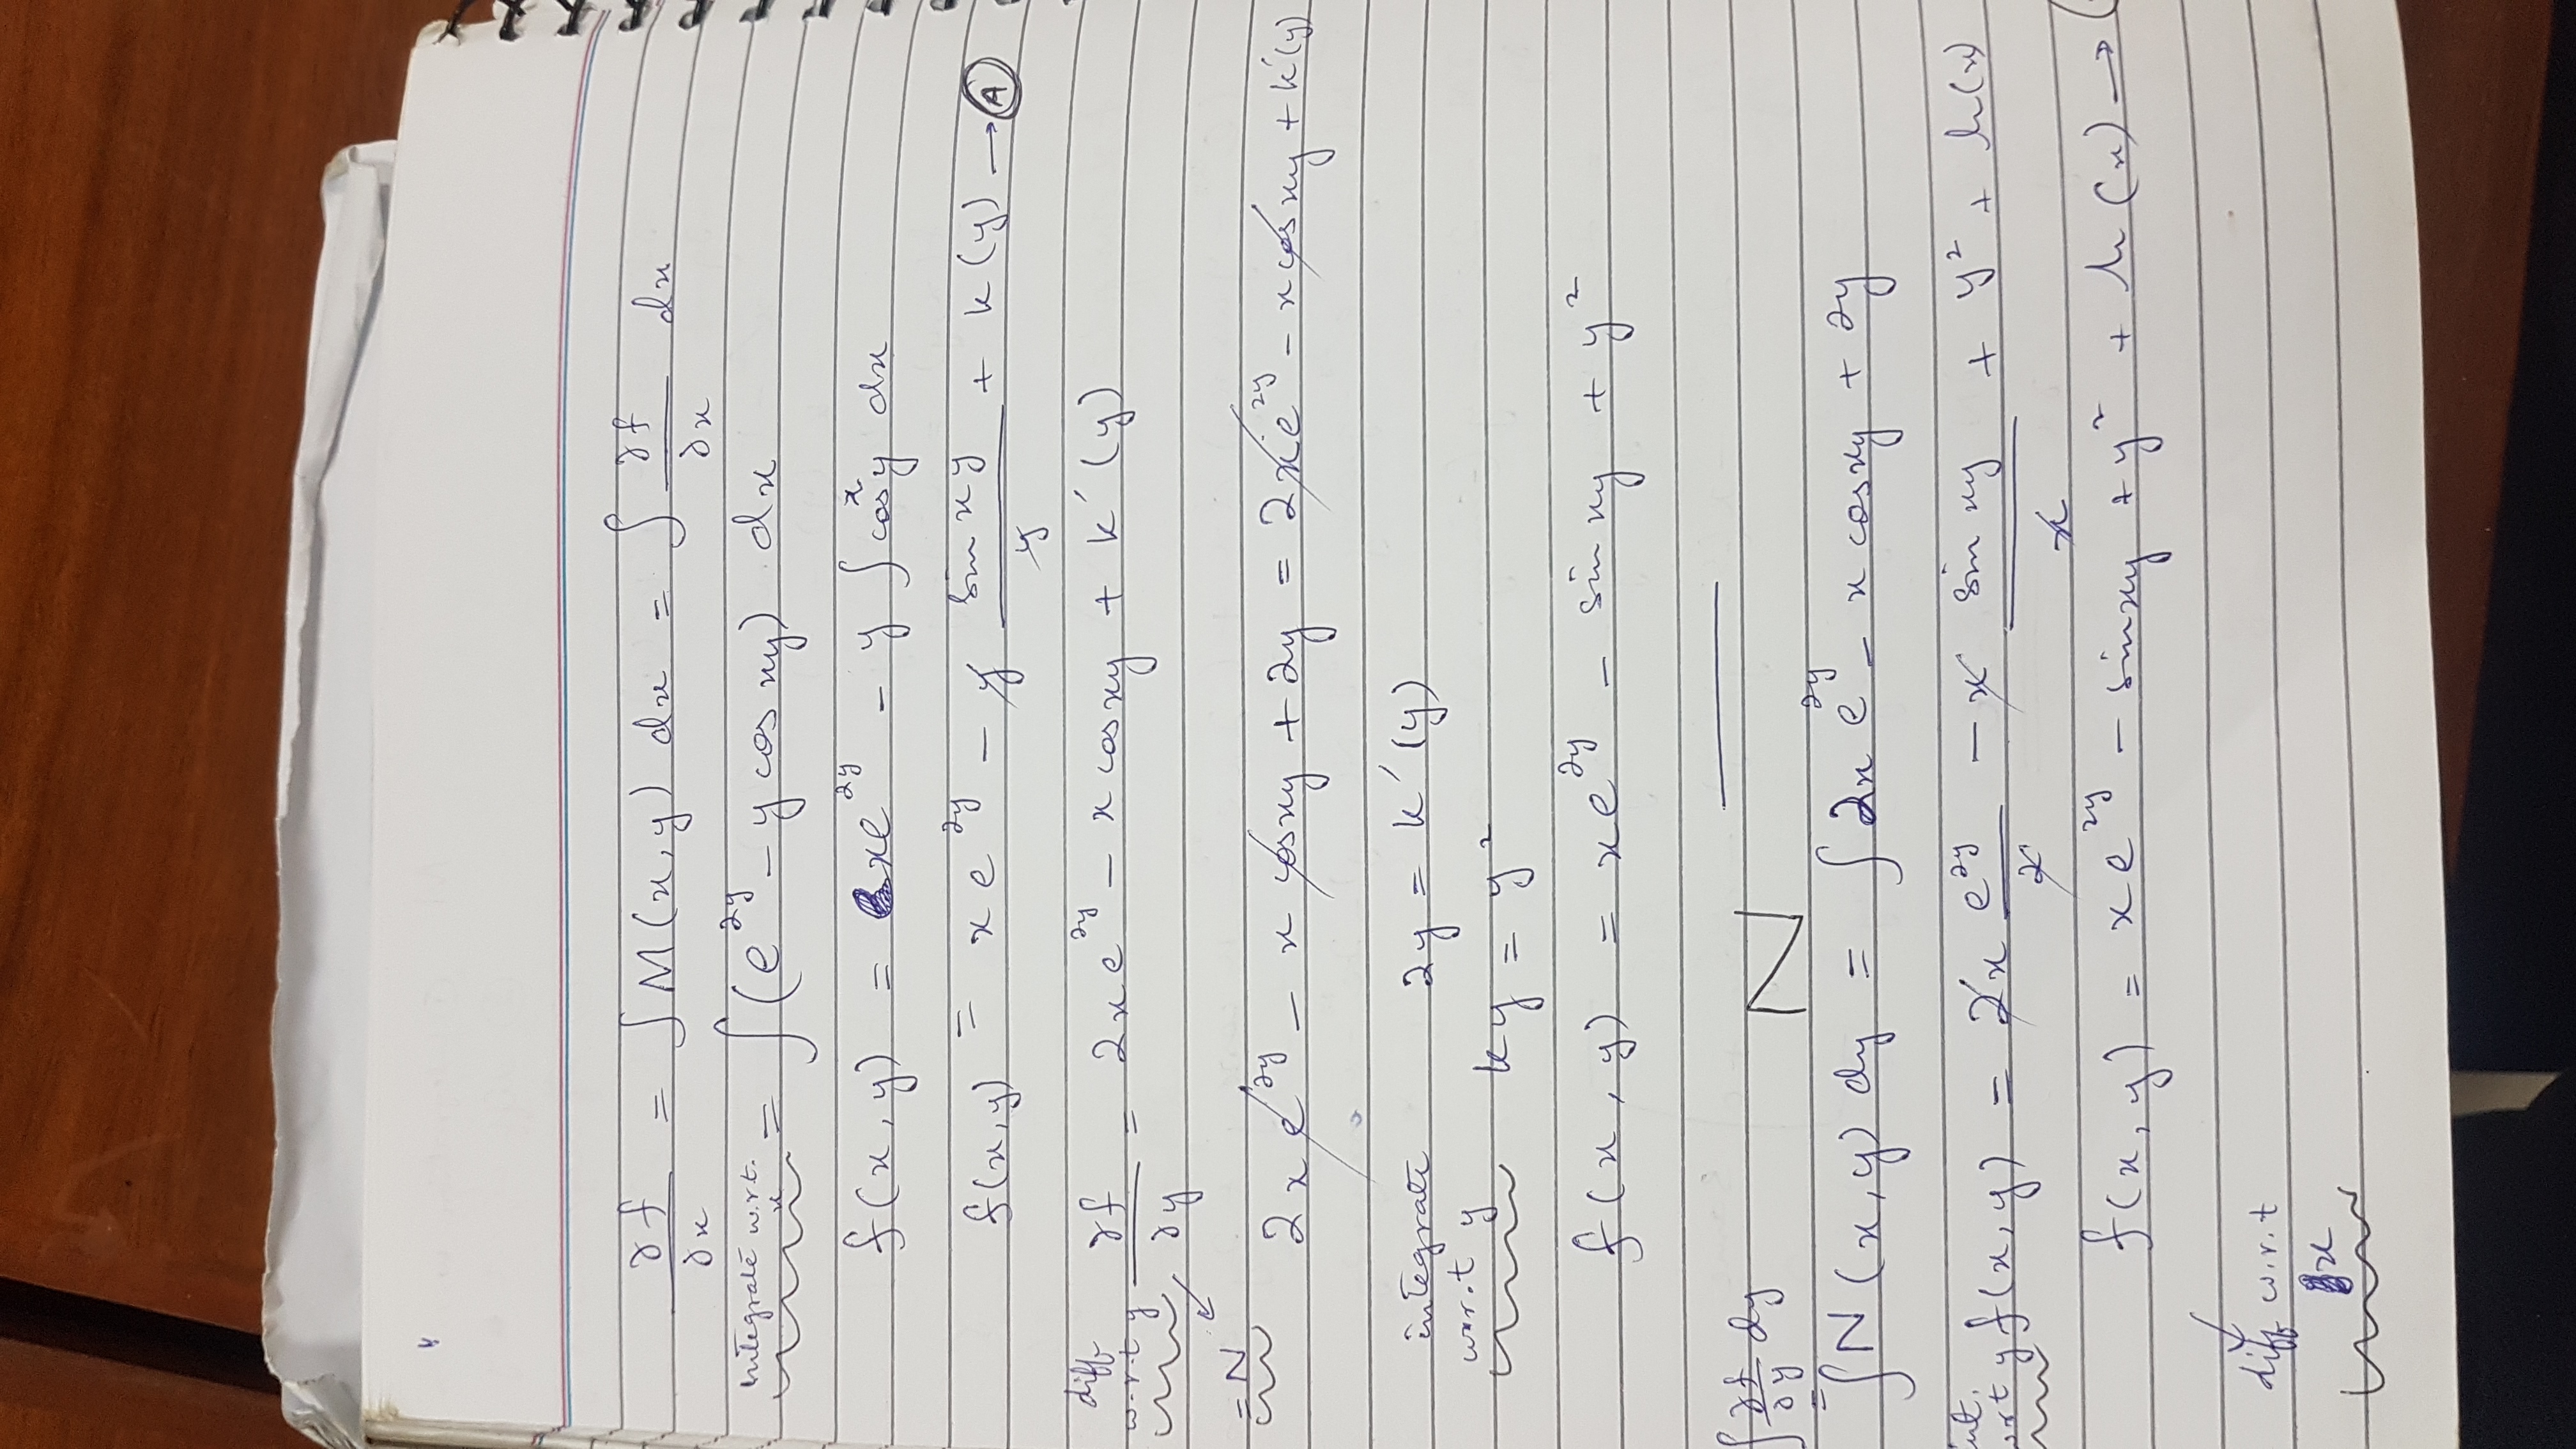 ∂f/∂x = ∫ M(x,y) dx = ∫ ∂f/∂x dx
integrate w.r.t. x = ∫ (e^2y - y cos xy) dx
f(x,y) = xe^2y - y ∫ cos xy dx
f(x,y) = xe^2y - y sin xy / y + k(y) → A
diff w.r.t y ∂f/∂y = 2xe^2y - x cos xy + k'(y)
= N
2xe^2y - x cos xy + 2y = 2xe^2y - x cos xy + k'(y)
integrate 2y = k'(y)
w.r.t y ky = y²
f(x,y) = xe^2y - sin xy + y²
∫ ∂f/∂y dy N
=
∫ N(x,y) dy = ∫ 2x e^2y - x cos xy + 2y
int. wrt y f(x,y) = 2x e^2y / 2 - x sin xy / x + y² + h(x)
f(x,y) = xe^2y - sin xy + y² + h(x) →
diff w.r.t
x